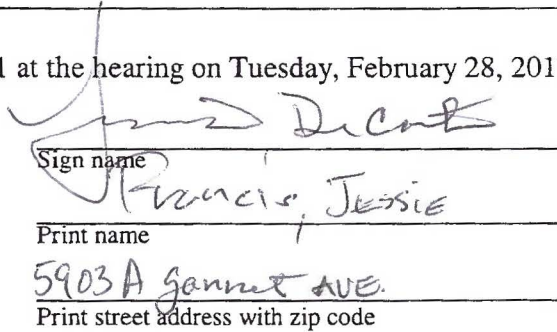 at the hearing on Tuesday, February 28, 201
Sign name
Francis, JESSIE
Print name
5903 A Gannet AVE.
Print street address with zip code